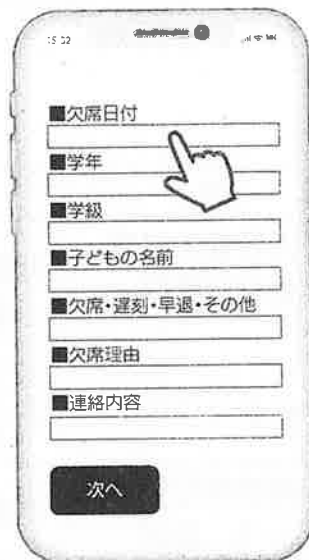 ■欠席日付
■学年
■学級
■子どもの名前
■欠席・遅刻・早退・その他
■欠席理由
■連絡内容
次へ